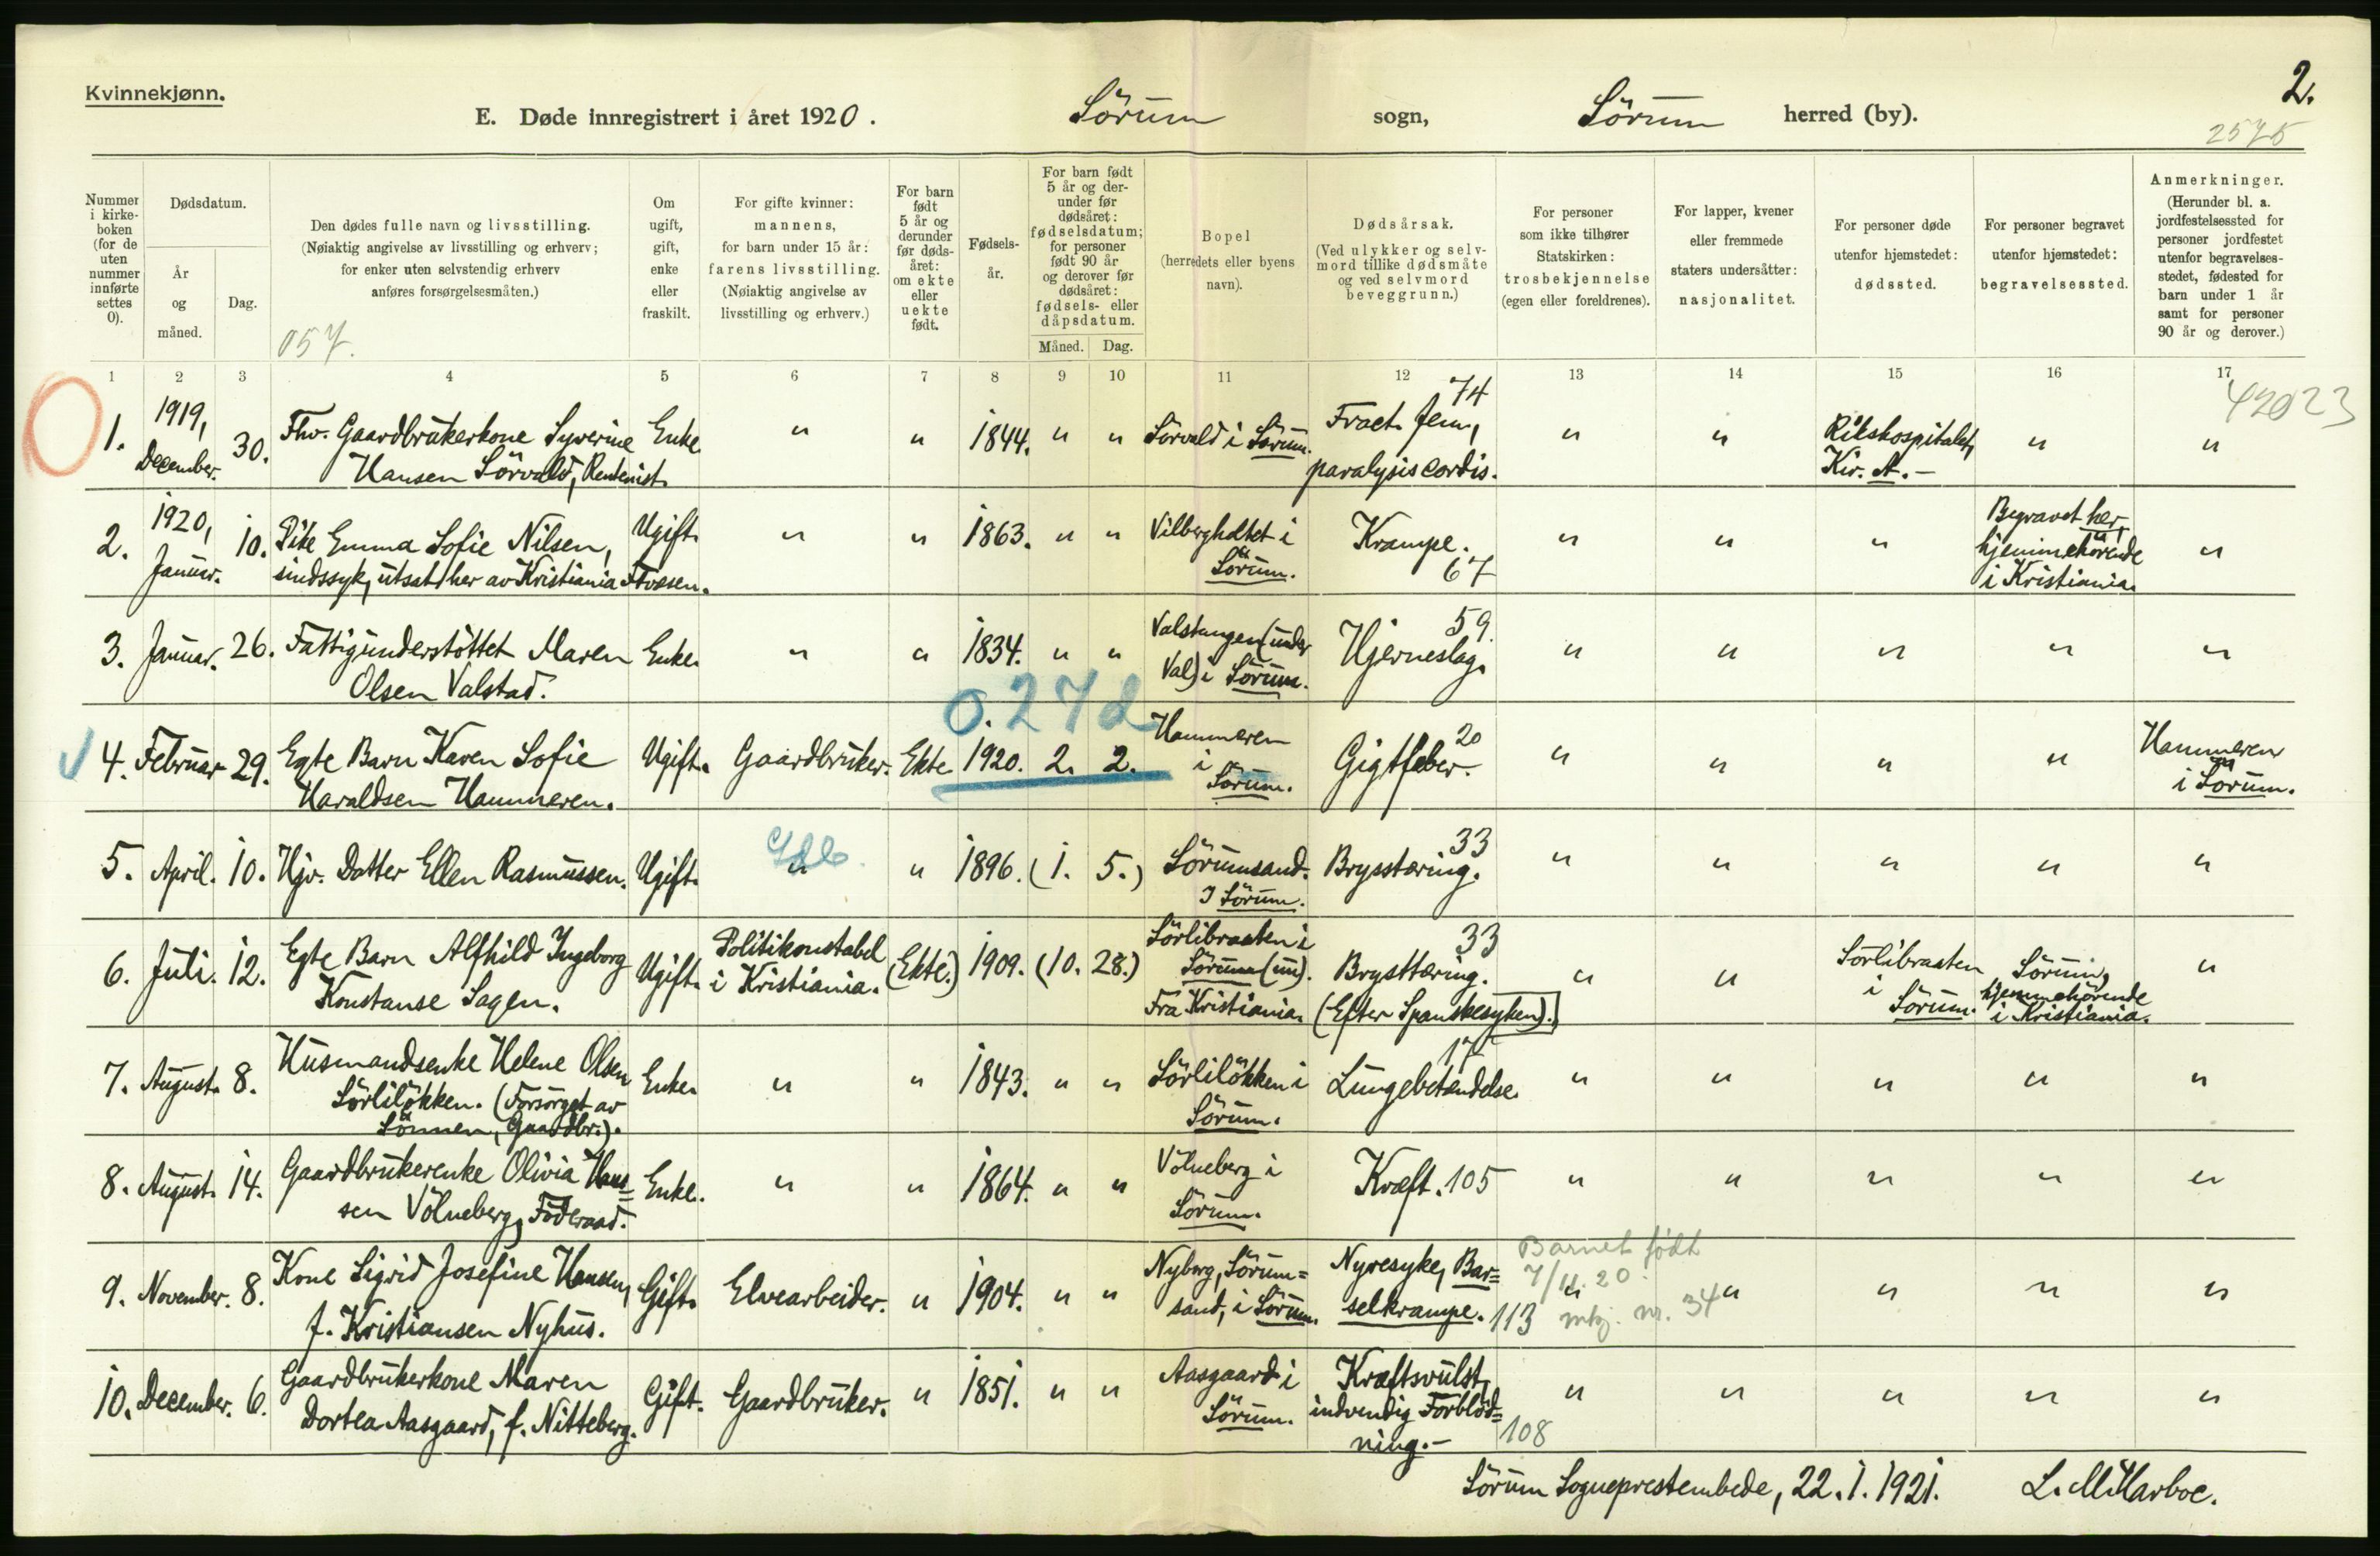 Kvinnekjønn.
2.
E. Døde innregistrert i året 1920. Sörum sogn, Sörum herred (by).
2575
Nummer i kirkeboken (for de uten nummer innførte settes 0).
Dødsdatum.
År og måned.
Dag.
Den dødes fulle navn og livsstilling.
(Nøiaktig angivelse av livsstilling og erhverv;
for enker uten selvstendig erhverv
anføres forsørgelsesmåten.)
057.
Om ugift, gift, enke eller fraskilt.
For gifte kvinner:
mannens,
for barn under 15 år:
farens livsstilling.
(Nøiaktig angivelse av
livsstilling og erhverv.)
For barn født 5 år og derunder før dødsåret: om ekte eller uekte født.
Fødselsår.
For barn født 5 år og derunder før dødsåret: fødselsdatum; for personer født 90 år og derover før dødsåret: fødsels- eller dåpsdatum.
Måned. Dag.
Bopel
(herredets eller byens
navn).
Dødsårsak.
(Ved ulykker og selvmord tillike dødsmåte og ved selvmord beveggrunn.)
For personer
som ikke tilhører
Statskirken:
trosbekjennelse
(egen eller foreldrenes).
For lapper, kvener
eller fremmede
staters undersåtter:
nasjonalitet.
For personer døde
utenfor hjemstedet:
dødssted.
For personer begravet
utenfor hjemstedet:
begravelsessted.
Anmerkninger.
(Herunder bl. a.
jordfestelsessted for
personer jordfestet
utenfor begravelsesstedet, fødested for
barn under 1 år
samt for personer
90 år og derover.)
1 2 3 4 5 6 7 8 9 10 11 12 13 14 15 16 17
42023
1. 1919, December. 30. Fhv. Gaardbrukerkone Syverine Hansen Sörvald, Rentenist. Enke " " 1844. " " Sörvald i Sörum. Fract. fem., paralysis cordis. 74 " " Rikshospitalet, Kir. A.- " "
2. 1920, Januar. 10. Pike Emma Sofie Nilsen, sindssyk, utsat her av Kristiania Ftvæsen. Ugift. " " 1863. " " Vilbergholtet i Sörum. Krampe. 67 " " " Begravet her, hjemmehörende i Kristiania. "
3. Januar. 26. Fattigunderstöttet Maren Olsen Valstad. Enke. " " 1834. " " Valstangen (under Val) i Sörum. Hjerneslag. 59. " " " " "
0.27d
4. Februar 29. Egte Barn Karen Sofie Haraldsen Hammeren. Ugift. Gaardbruker. Ekte 1920. 2. 2. Hammeren i Sörum. Gigtfeber. 20 " " " " Hammeren i Sörum.
5. April. 10. Hjv. Datter Ellen Rasmussen. Ugift. " " 1896. (1. 5.) Sörumsand. I Sörum. Brysstæring. 33 " " " " "
6. Juli. 12. Egte Barn Alfhild Ingeborg Konstanse Sagen. Ugift. Politikonstabel i Kristiania. (Ekte.) 1909. (10. 28.) Sörlibraaten i Sörum (un). Fra Kristiania. Brysttæring. (Efter Spanskesyken). 33 " " Sörlibraaten i Sörum. Sörum, hjemmehörende i Kristiania. "
7. August. 8. Husmandsenke Helene Olsen Sörlilökken. (Forsörget av Sönnen, Gaardbr.). Enke. " " 1843. " " Sörlilökken i Sörum. Lungebetændelse. 17 " " " " "
8. August. 14. Gaardbrukerenke Olivia Hansen Völneberg, Föderaad. Enke. " " 1864. " " Völneberg i Sörum. Kræft. 105 " " " " "
9. November. 8. Kone Sigrid Josefine Hansen, f. Kristiansen Nyhus. Gift. Elvearbeider. " 1904. " " Nyborg, Sörumsand, i Sörum. Nyresyke, Barselkrampe. 113 Barnet født 7/11.20. mkj. nr. 34 " " " " "
10. December. 6. Gaardbrukerkone Maren Dortea Aasgaard, f. Nitteberg. Gift. Gaardbruker. " 1851. " " Aasgaard i Sörum. Kræftsvulst, indvendig Forblödning.- 108 " " " " "
Sörum Sogneprestembede, 22.1.1921. L. M. Harboe.